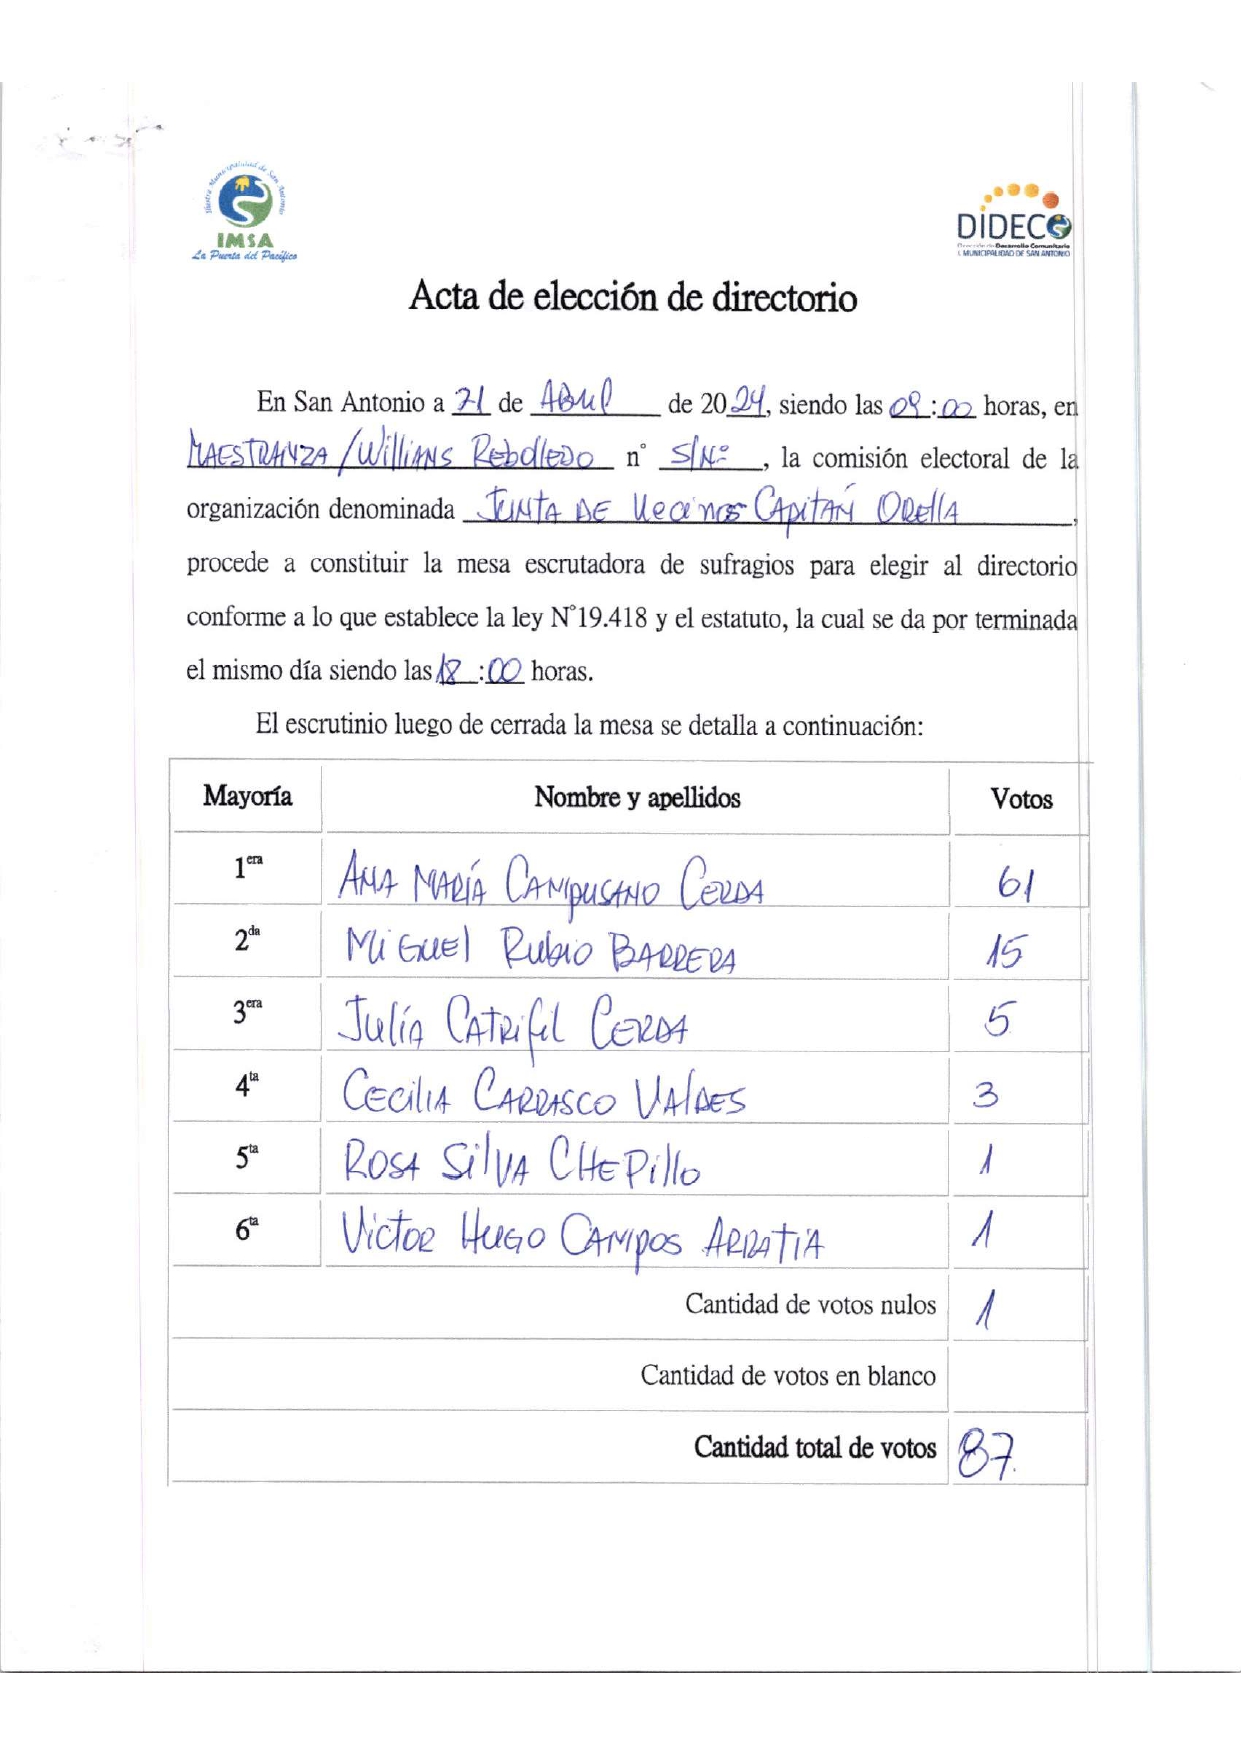 Ilustre Municipalidad de San Antonio
IMSA
La Puerta del Pacífico
DIDECO
Dirección de Desarrollo Comunitario
I. MUNICIPALIDAD DE SAN ANTONIO
Acta de elección de directorio
En San Antonio a 21 de Abril de 2024, siendo las 09:00 horas, en
MAESTRANZA / Willians Rebolledo n° S/Nº, la comisión electoral de la
organización denominada Junta de Vecinos Capitán Orella,
procede a constituir la mesa escrutadora de sufragios para elegir al directorio
conforme a lo que establece la ley N°19.418 y el estatuto, la cual se da por terminada
el mismo día siendo las 18:00 horas.
El escrutinio luego de cerrada la mesa se detalla a continuación:
Mayoría Nombre y apellidos Votos
1era Ana María Campusano Cerda 61
2da Miguel Rubio Barrera 15
3era Julía Catrifil Cerda 5
4ta Cecilia Carrasco Valdes 3
5ta Rosa Silva Chepillo 1
6ta Victor Hugo Campos Arratia 1
Cantidad de votos nulos 1
Cantidad de votos en blanco
Cantidad total de votos 87.